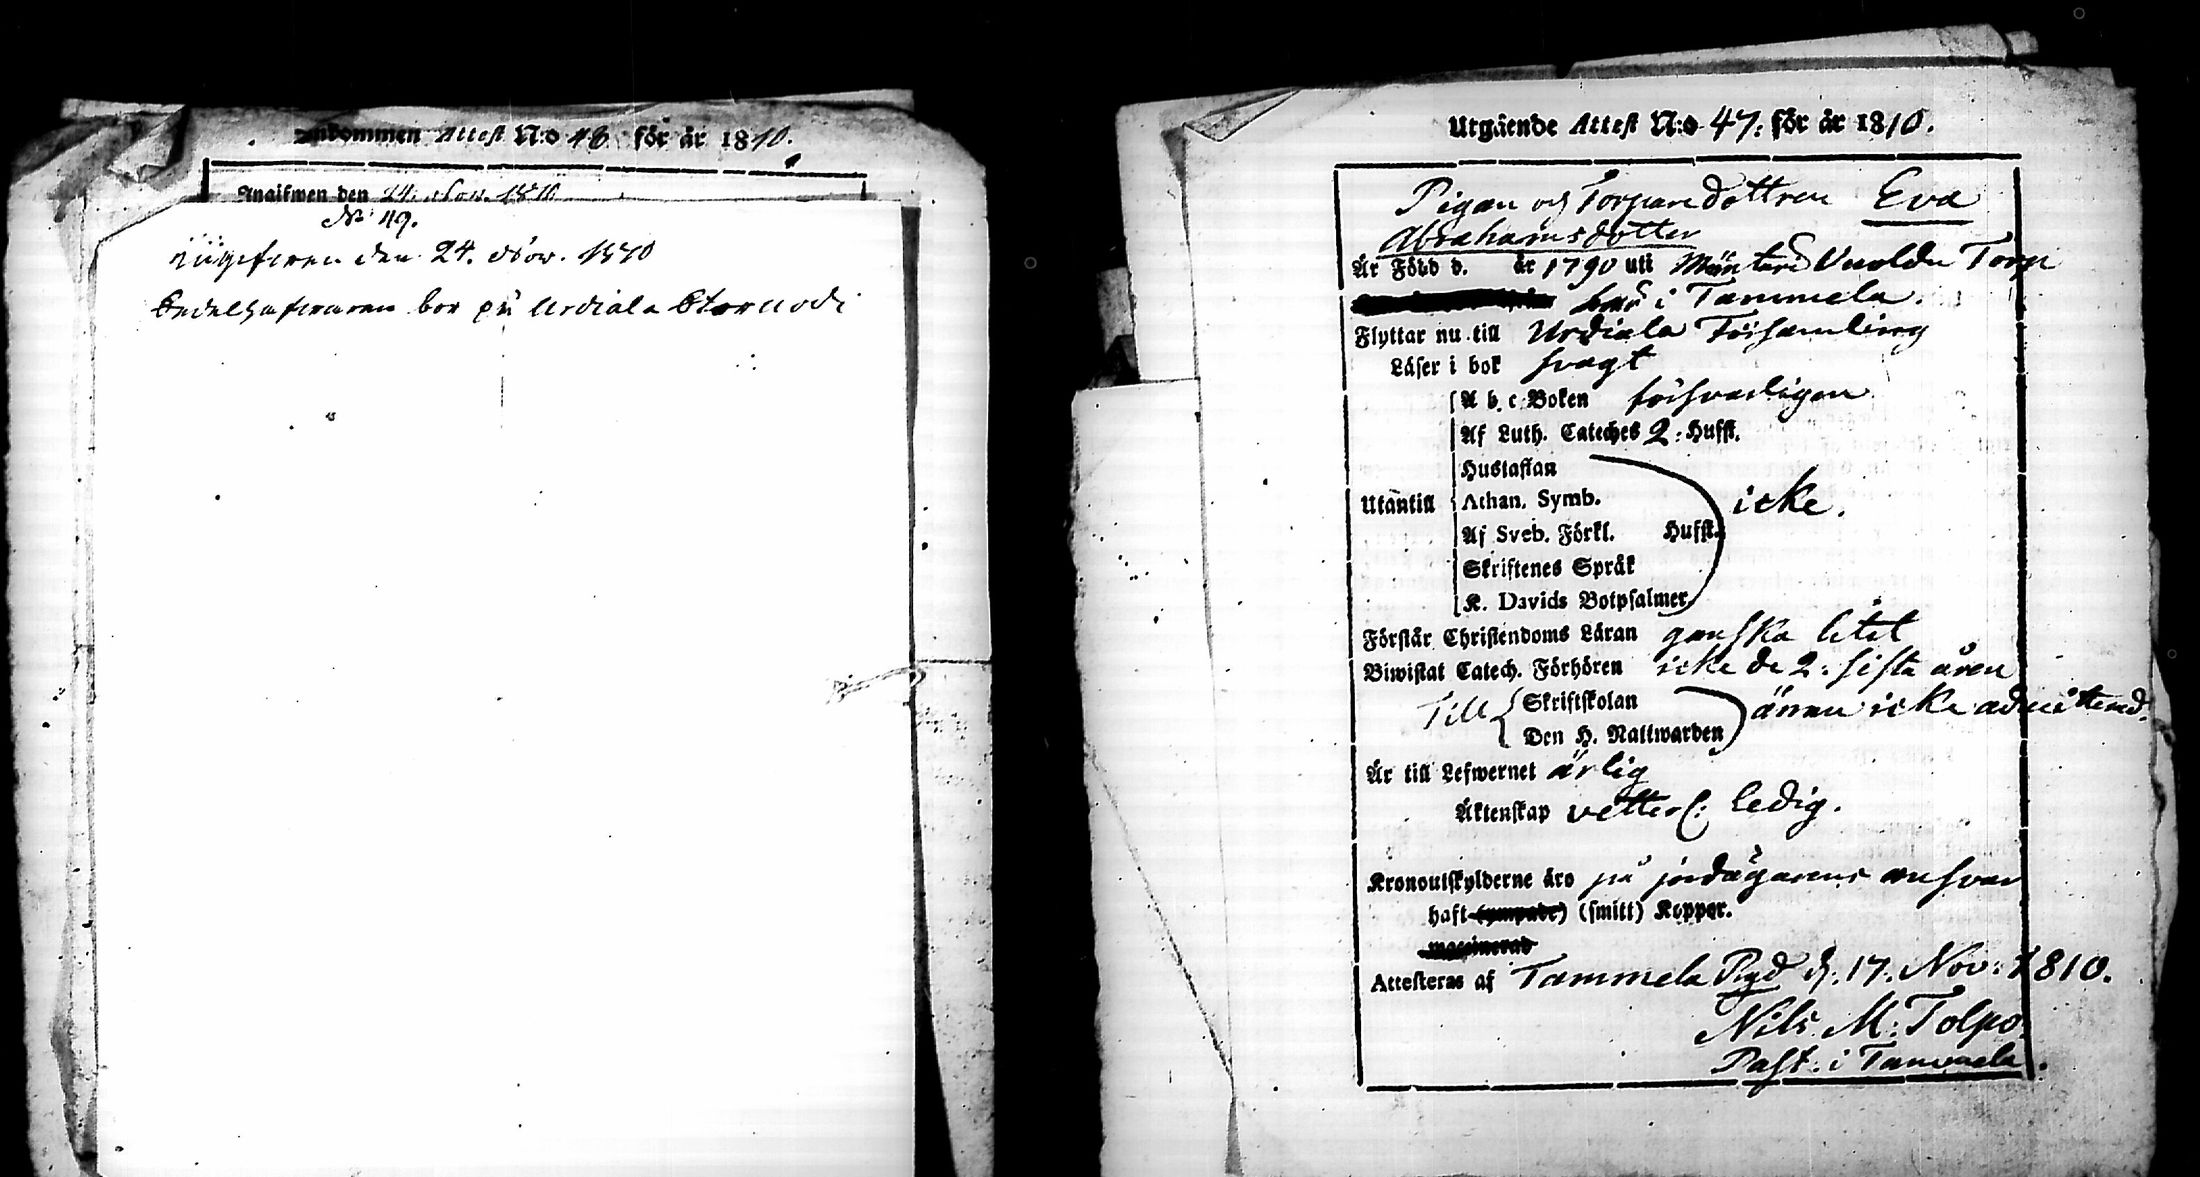 Ankommen Attest N:o 48 för år 1810.
Angifwen den 24. Nov. 1810
No 49.
Angifven den 24. Nov. 1810
Sedelhafvaren bor på Urdiala
Utgående Attest N:o 47: för år 1810.
Pigan och Torparedottren Eva
Abrahamsdotter
Är Född d. år 1790 uti Torp
här i Tammela.
Flyttar nu till Urdiala Församling
Läser i bok svagt
A b c Boken försvarligen
Af Luth. Cateches 2: Hufst.
Hustaflan
Utantill Athan. Symb. icke.
Af Sveb. Förkl. Hufst.
Skriftenes Språk
K. Davids Botpsalmer
Förstår Christendoms Läran ganska litet
Biwistat Catech. Förhören icke de 2: sista åren
Till Skriftskolan ännu icke admitterad.
Den H. Nattwarden
Är till Lefwernet ärlig
Äktenskap vetterl: ledig.
Kronoutskylderne äro på jordägarens ansvar
haft (ympade) (smitt) Koppor.
vaccinerad
Attesteras af Tammela Pgd d. 17. Nov: 1810.
Nils M: Tolpo.
Past: i Tammela.